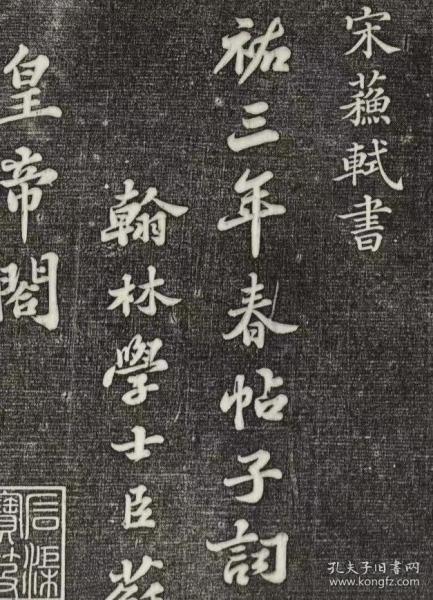 宋蘓軾書
祐三年春帖子詞
翰林學士臣蘇
皇帝閣
石渠
寶笈
孔夫子旧书网
www.kongfz.com